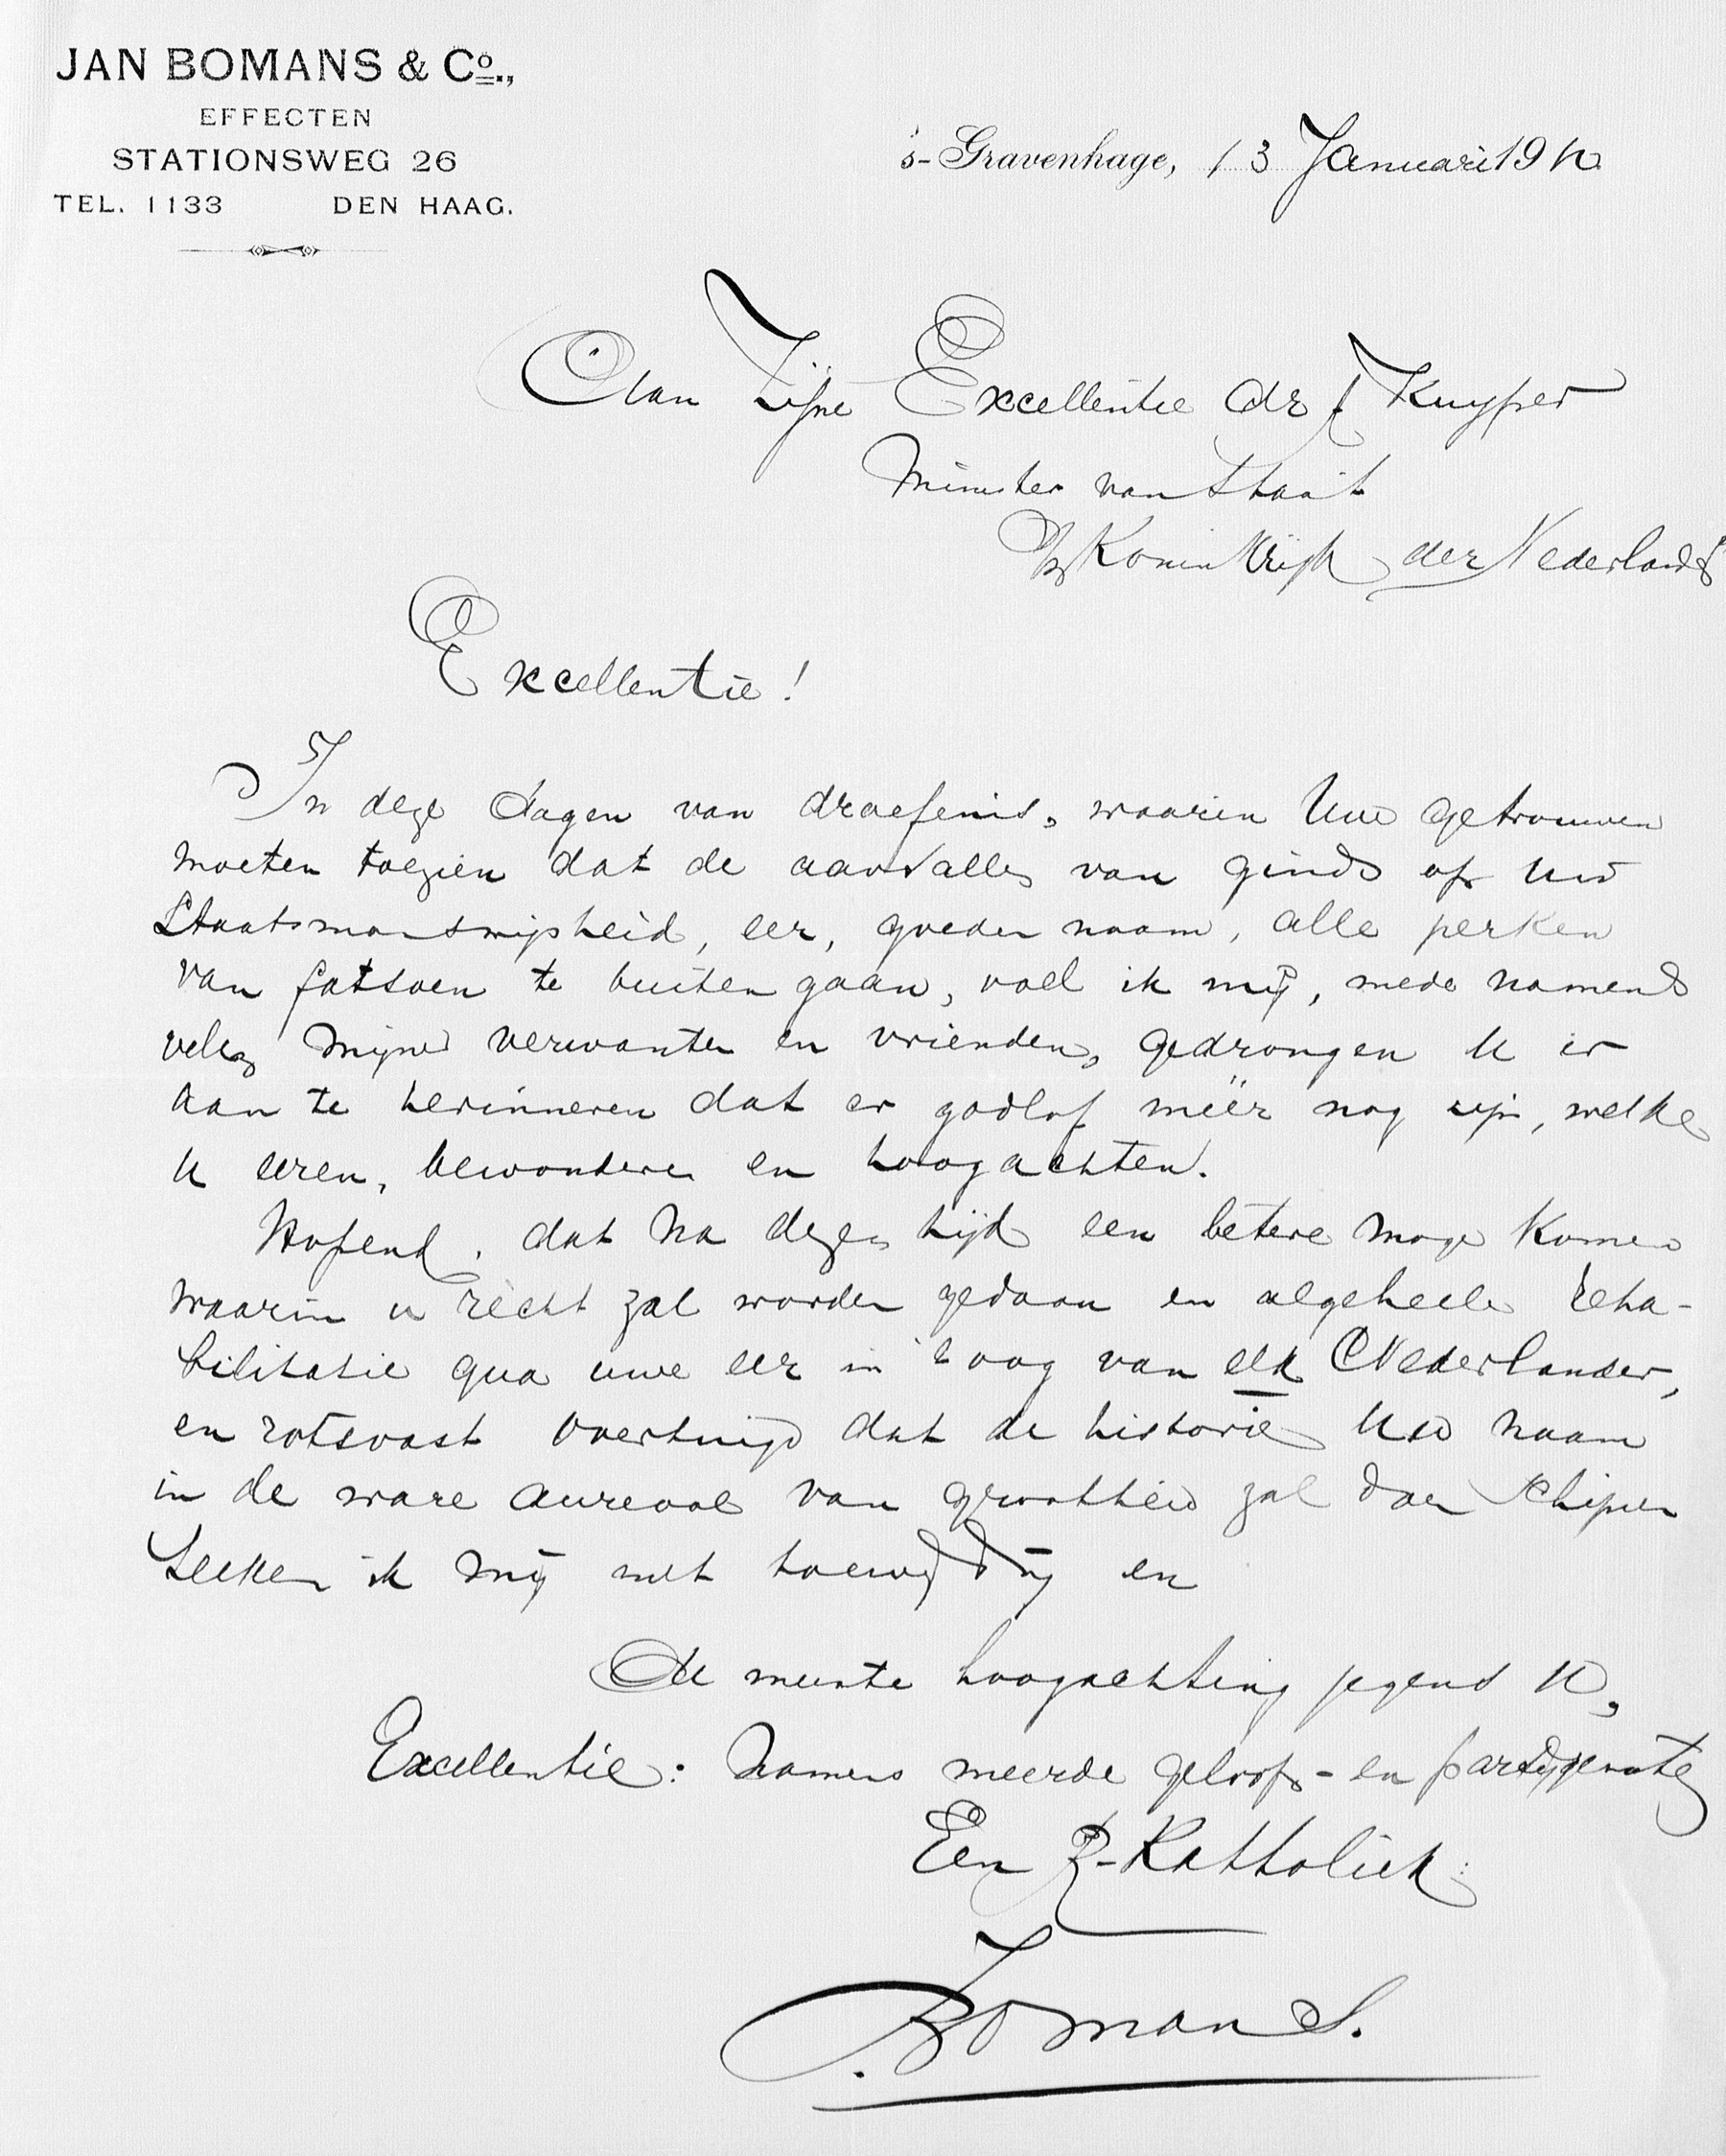 JAN BOMANS & Co.,
EFFECTEN
STATIONSWEG 26
TEL. 1133 DEN HAAG.
's-Gravenhage, 13 Januari 1910
Aan Zijne Excellentie dr A Kuyper
Minister van Staat
Koninkrijk der Nederlanden
Excellentie!
In deze dagen van droefenis, waarin Uwe getrouwen
moeten toezien dat de aanvallen van ginds op uw
Staatsmanswijsheid, eer, goeden naam, alle perken
van fatsoen te buiten gaan, voel ik mij, mede namens
velen mijner verwanten en vrienden, gedrongen U er
aan te herinneren dat er godlof méér nog zijn, welke
U eeren, bewonderen en hoogachten.
Hopend, dat na dezen tijd een betere moge komen
waarin u recht zal worden gedaan en algeheele reha-
bilitatie qua uwe eer in 't oog van elk Nederlander,
en rotsvast overtuigd dat de historie Uw naam
in de ware aureool van grootheid zal doen schijnen
teeken ik mij met toewijding en
de meeste hoogachting jegens U,
Excellentie: Namens meerde geloofs- en partijgenooten
Een R-Katholiek:
Bomans.